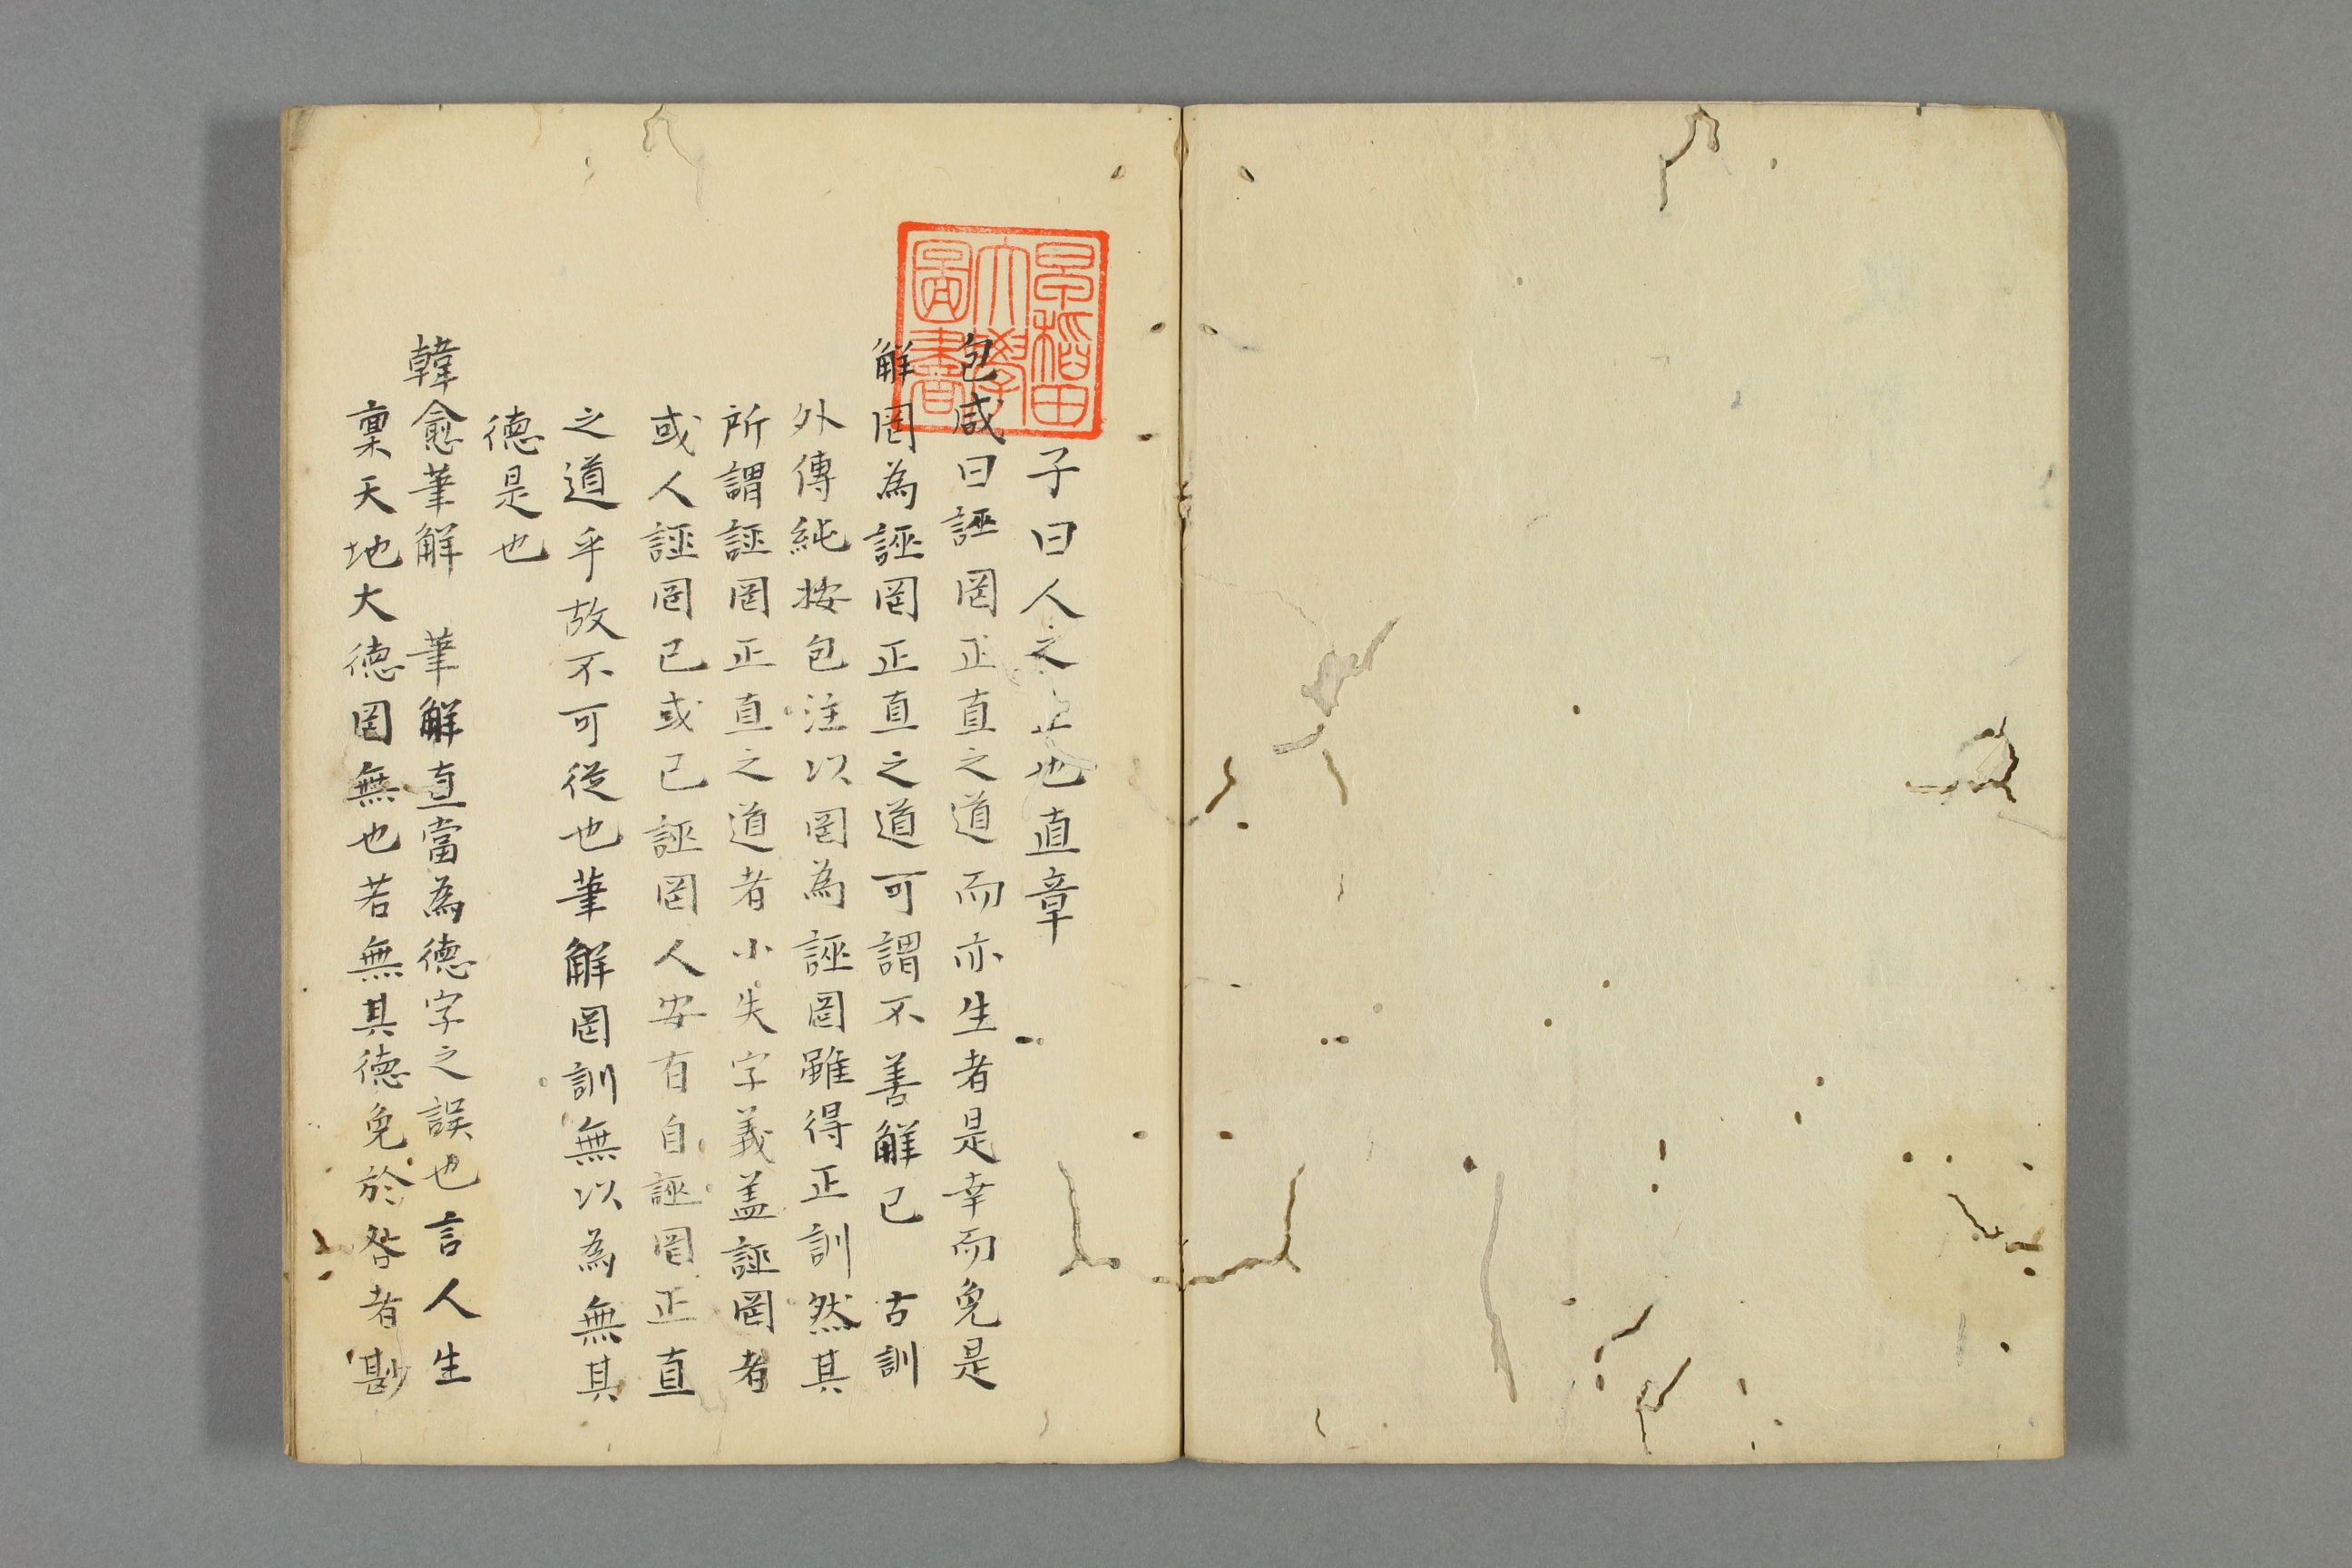 早稲田大學圖書
子曰人之生也直章
包咸曰誣罔正直之道而亦生者是幸而免是
解罔為誣罔正直之道可謂不善解已 古訓
外傳純按包注以罔為誣罔雖得正訓然其
所謂誣罔正直之道者小失字義盖誣罔者
或人誣罔己或己誣罔人安有自誣罔正直
之道乎故不可從也筆解罔訓無以為無其
德是也
韓愈筆解 筆解直當為德字之誤也言人生
稟天地大德罔無也若無其德免於咎者尠